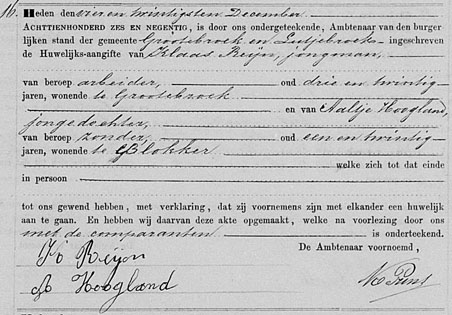 16. Heden den vier en twintigsten December
ACHTTIENHONDERD ZES EN NEGENTIG, is door ons ondergeteekende, Ambtenaar van den burger-
lijken stand der gemeente Grootebroek en Lutjebroek ingeschreven
de Huwelijks-aangifte van Klaas Reijn, jongman,
van beroep arbeider, oud drie en twintig
jaren, wonende te Grootebroek
en van Aaltje Hoogland,
jongedochter,
van beroep zonder, oud een en twintig
jaren, wonende te Blokker
welke zich tot dat einde
in persoon
tot ons gewend hebben, met verklaring, dat zij voornemens zijn met elkander een huwelijk
aan te gaan. En hebben wij daarvan deze akte opgemaakt, welke na voorlezing door ons
met de comparanten is onderteekend.
De Ambtenaar voornoemd,
K Reijn
A Hoogland